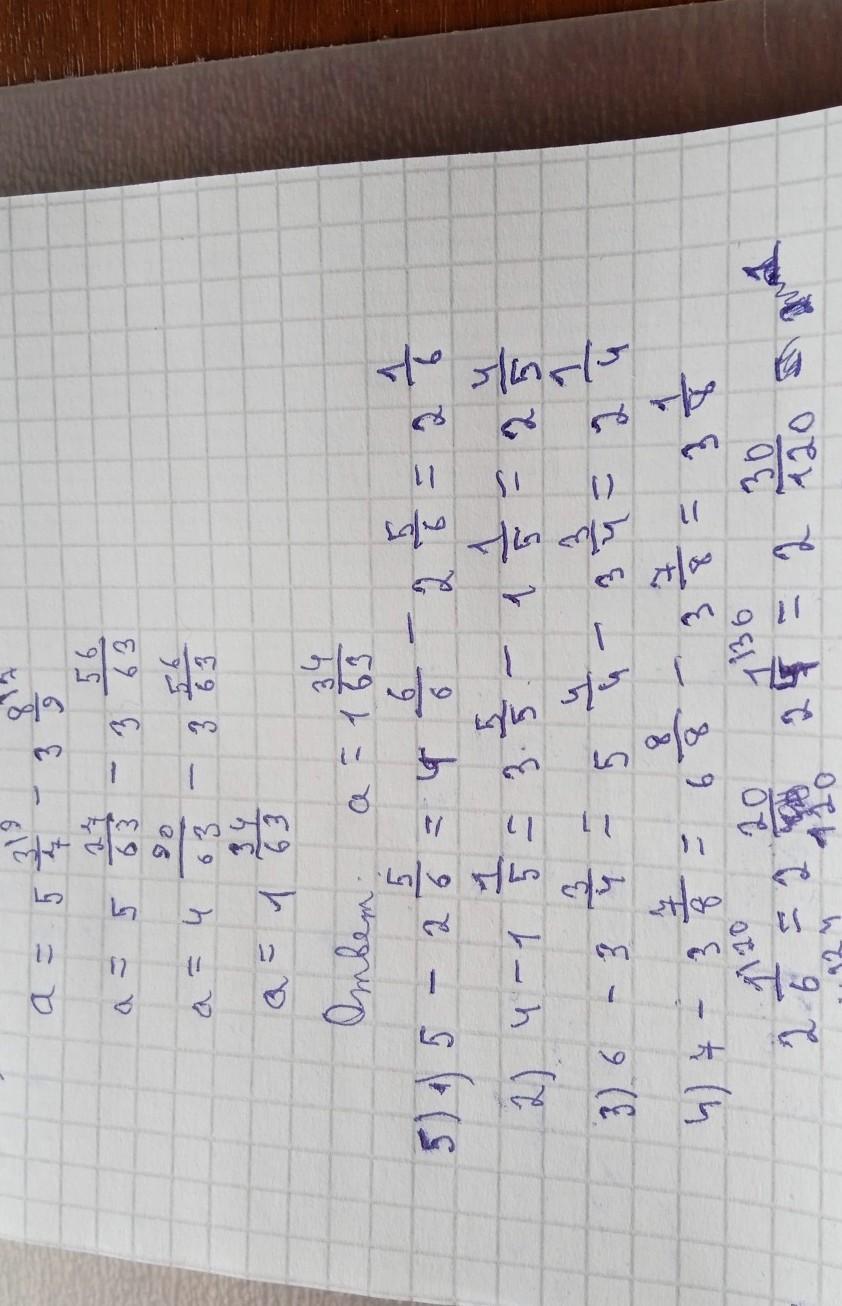 a = 5 3/7 - 3 8/9
a = 5 27/63 - 3 56/63
a = 4 90/63 - 3 56/63
a = 1 34/63
Ответ: a = 1 34/63
5) 1) 5 - 2 5/6 = 4 6/6 - 2 5/6 = 2 1/6
2) 4 - 1 1/5 = 3 5/5 - 1 1/5 = 2 4/5
3) 6 - 3 3/4 = 5 4/4 - 3 3/4 = 2 1/4
4) 7 - 3 7/8 = 6 8/8 - 3 7/8 = 3 1/8
2 1/6 = 2 20/120 2 1/4 = 2 30/120